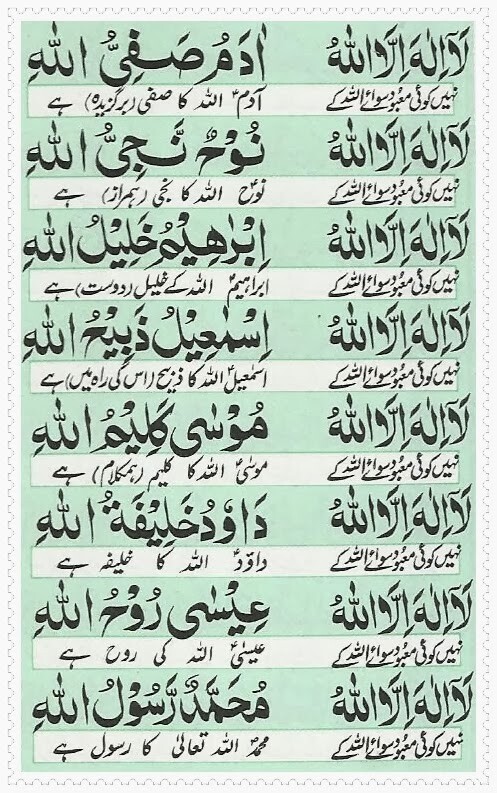 لَآ اِلٰهَ اِلَّا اللّٰهُ اٰدَمُ صَفِيُّ اللّٰهِ
نہیں کوئی معبود سوائے اللہ کے آدمؑ اللہ کا صفی (برگزیدہ) ہے
لَآ اِلٰهَ اِلَّا اللّٰهُ نُوْحٌ نَّجِيُّ اللّٰهِ
نہیں کوئی معبود سوائے اللہ کے نوحؑ اللہ کا نجی (ہمراز) ہے
لَآ اِلٰهَ اِلَّا اللّٰهُ اِبْرٰهِيْمُ خَلِيْلُ اللّٰهِ
نہیں کوئی معبود سوائے اللہ کے ابراہیمؑ اللہ کے خلیل (دوست) ہے
لَآ اِلٰهَ اِلَّا اللّٰهُ اِسْمٰعِيْلُ ذَبِيْحُ اللّٰهِ
نہیں کوئی معبود سوائے اللہ کے اسمٰعیلؑ اللہ کا ذبیح (اس کی راہ میں) ہے
لَآ اِلٰهَ اِلَّا اللّٰهُ مُوْسٰى كَلِيْمُ اللّٰهِ
نہیں کوئی معبود سوائے اللہ کے موسیٰؑ اللہ کا کلیم (ہمکلام) ہے
لَآ اِلٰهَ اِلَّا اللّٰهُ دَاوٗدُ خَلِيْفَةُ اللّٰهِ
نہیں کوئی معبود سوائے اللہ کے داؤدؑ اللہ کا خلیفہ ہے
لَآ اِلٰهَ اِلَّا اللّٰهُ عِيْسٰى رُوْحُ اللّٰهِ
نہیں کوئی معبود سوائے اللہ کے عیسیٰؑ اللہ کی روح ہے
لَآ اِلٰهَ اِلَّا اللّٰهُ مُحَمَّدٌ رَّسُوْلُ اللّٰهِ
نہیں کوئی معبود سوائے اللہ کے محمدؐ اللہ تعالیٰ کا رسول ہے